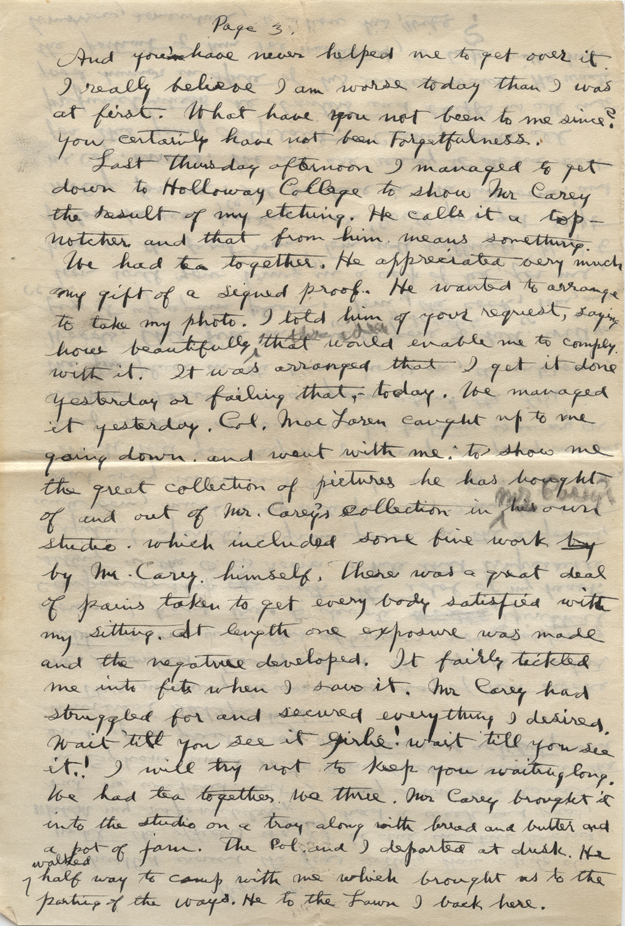 Page 3.
And you have never helped me to get over it.
I really believe I am worse today than I was
at first. What have you not been to me since?
you certainly have not been Forgetfulness.
Last Thursday afternoon I managed to get
down to Holloway College to show Mr Carey
the result of my etching. He calls it a top-
notcher and that from him means something.
We had tea together. He appreciated very much
my gift of a signed proof. He wanted to arrange
to take my photo. I told him of your request, saying
how beautifully the idea that would enable me to comply
with it. It was arranged that I get it done
yesterday or failing that, - today. We managed
it yesterday. Col. Mac Laren caught up to me
going down and went with me; to show me
the great collection of pictures he has bought
of and out of Mr. Carey's collection in Mr Carey's his own
studio. which included some fine work by
by Mr. Carey himself. There was a great deal
of pains taken to get every body satisfied with
my sitting. At length one exposure was made
and the negative developed. It fairly tickled
me into fits when I saw it. Mr Carey had
struggled for and secured everything I desired.
Wait till you see it girlie! wait till you see
it.! I will try not to keep you waiting long.
We had tea together we three. Mr Carey brought it
into the studio on a tray along with bread and butter and
a pot of jam. The Col. and I departed at dusk. He
walked
half way to camp with me which brought us to the
parting of the ways. He to the Lawn I back here.